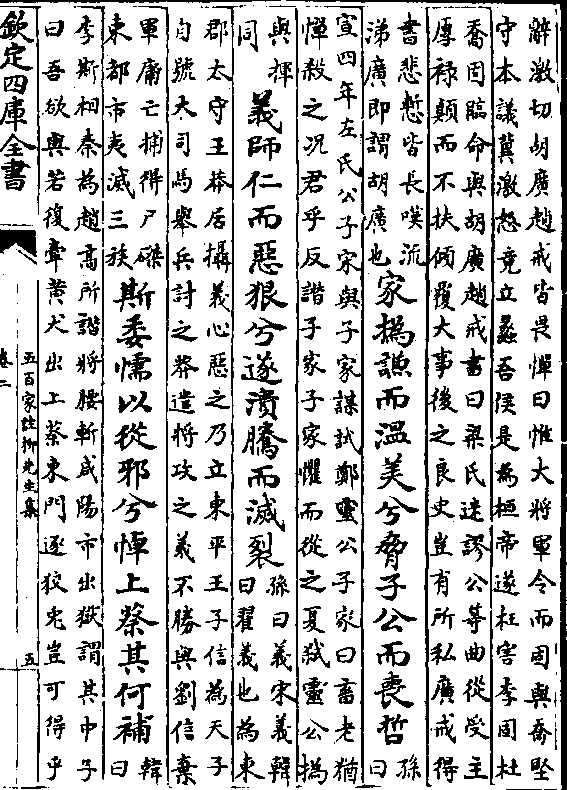 辭激切胡廣趙戒皆畏憚曰惟大將軍令而固與喬堅
守本議冀激怒竟立蠡吾侯是為桓帝遂枉害李固杜
喬固臨命與胡廣趙戒書曰梁氏迷謬公等曲從受主
厚祿顛而不扶傾覆大事後之良史豈有所私廣戒得
書悲慙皆長嘆流
涕廣即謂胡廣也
家撝謙而溫美兮脅子公而喪哲
孫
曰
宣四年左氏公子宋與子家謀試鄭靈公子家曰畜老猶
憚殺之况君乎反譖子家子家懼而從之夏弑靈公撝
與揮
同
義師仁而惡狠兮遂潰騰而滅裂
孫曰義宋義韓
曰翟義也為東
郡太守王莽居攝義心惡之乃立東平王子信為天子
自號大司馬舉兵討之莽遣將攻之義不勝與劉信棄
軍庸亡捕得尸磔
東都市夷滅三族
斯委懦以從邪兮悼上蔡其何補
韓
曰
李斯相秦為趙高所譖將腰斬咸陽市出獄謂其中子
曰吾欲與若復牽黃犬出上蔡東門逐狡兔豈可得乎
欽定四庫全書
五百家註柳先生集
卷二
五